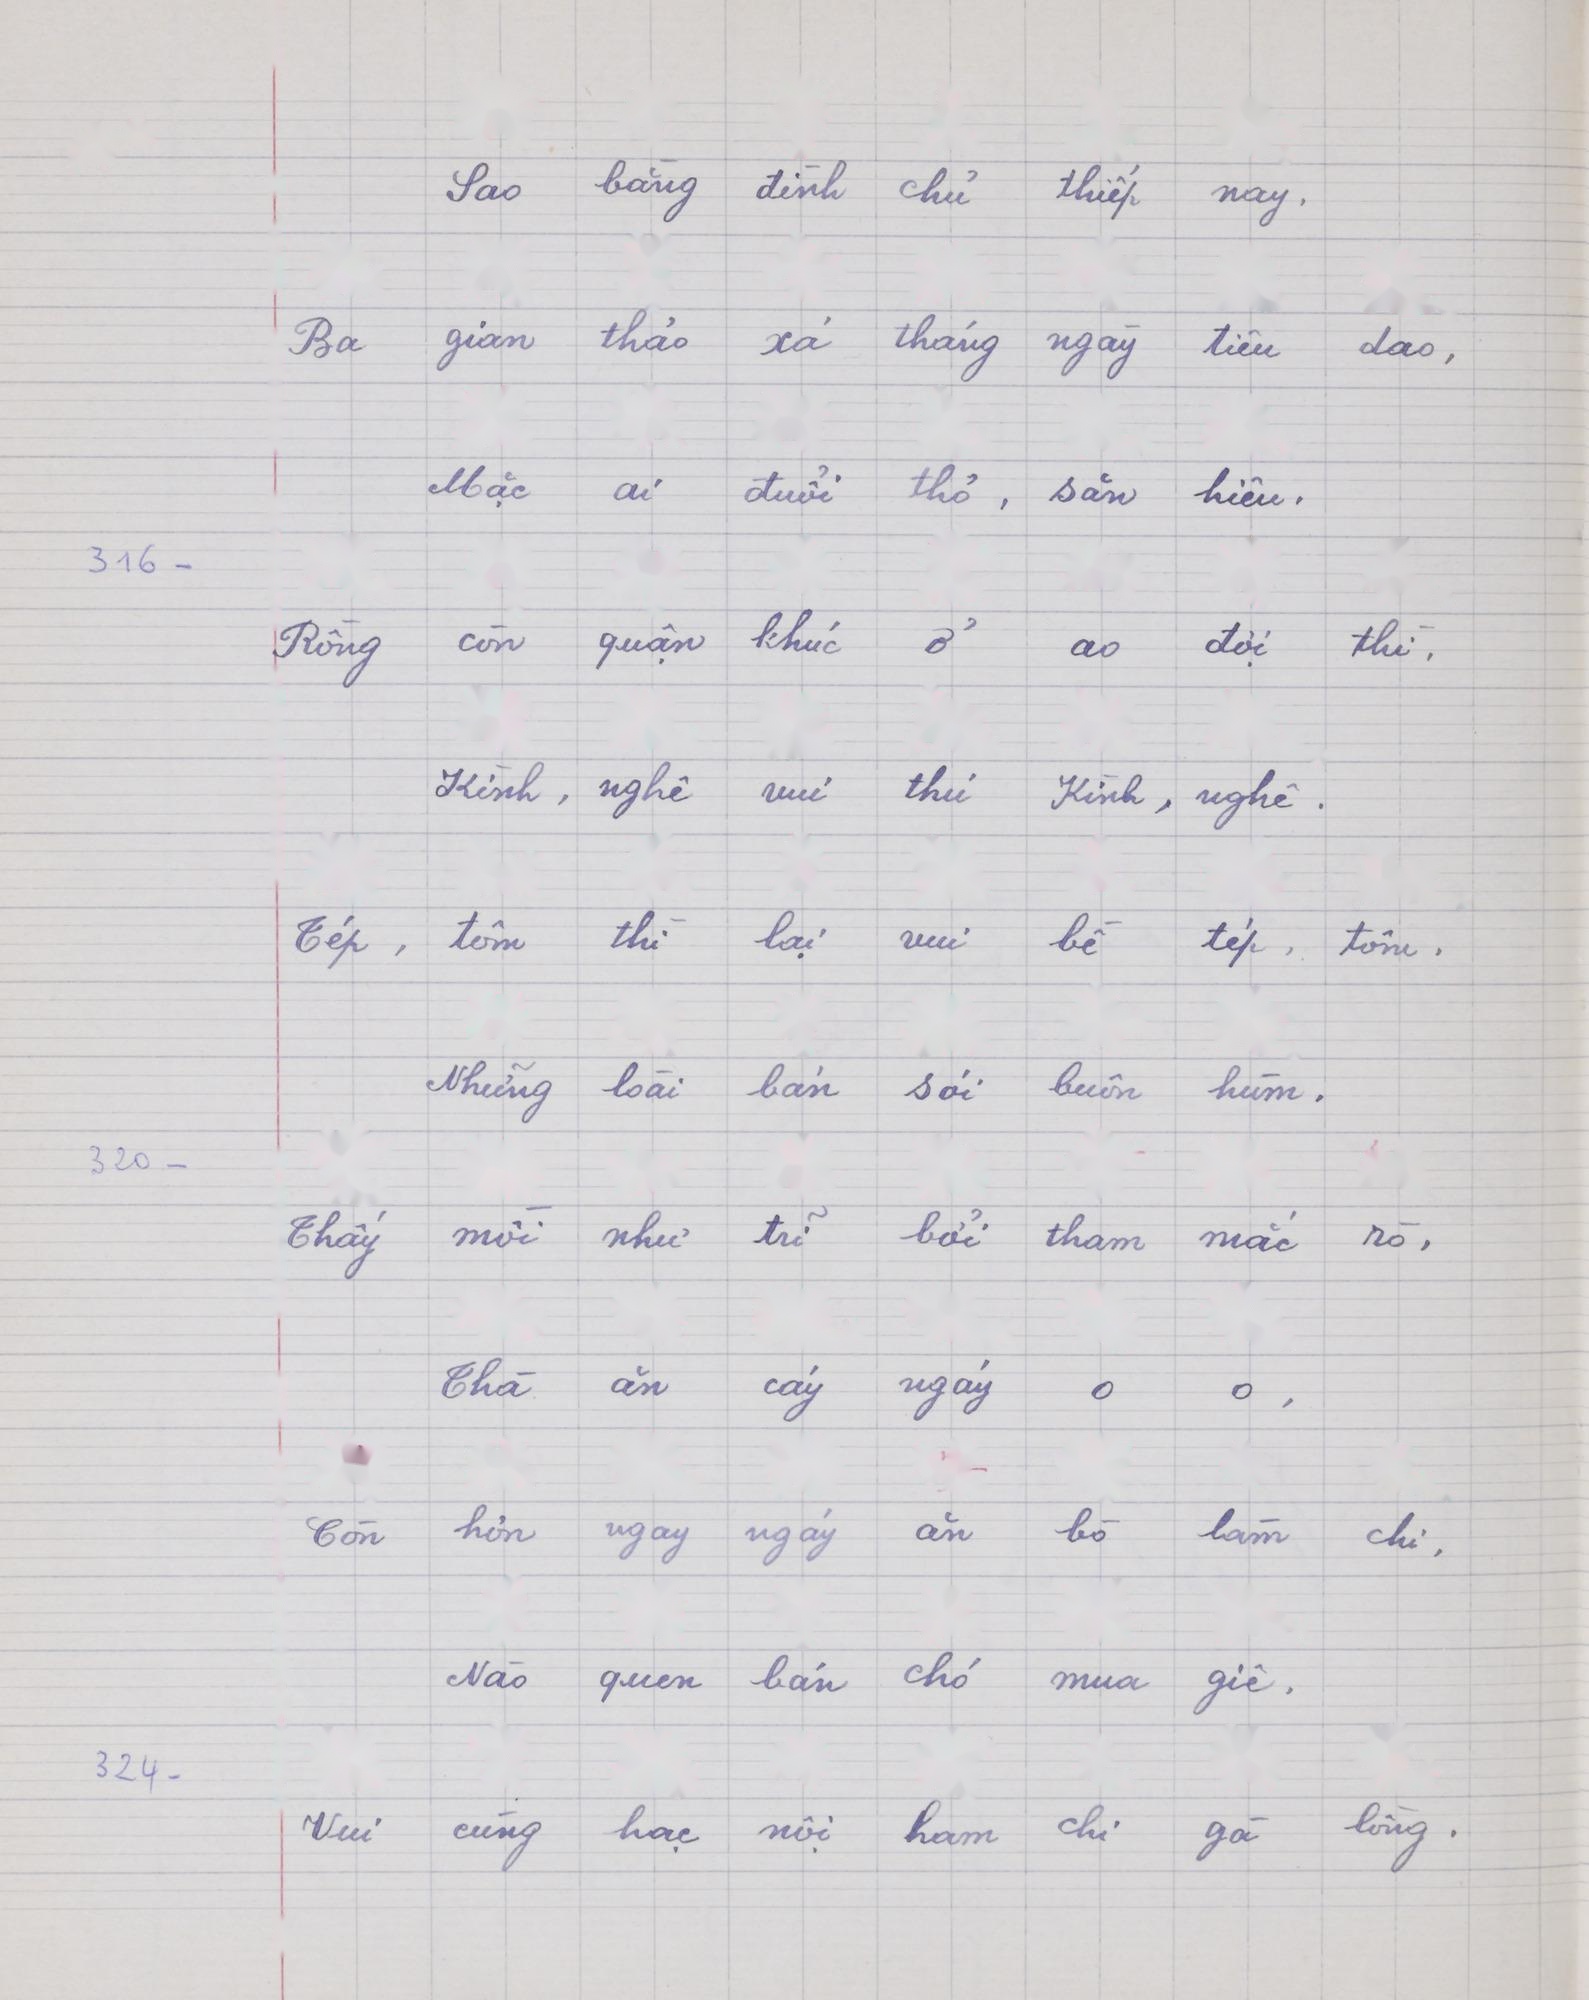 Sao bằng đỉnh chử thiếp nay.
Ba gian thảo xá tháng ngày tiêu dao,
Mặc ai đuổi thỏ, săn hiêu.
316 -
Rồng còn quận khúc ở ao đợi thì,
Kình, nghê vui thú Kình, nghê.
Tép, tôm thì lại vui bề tép, tôm.
Những loài bán sói buôn hùm.
320 -
Thấy mồi như trĩ bởi tham mắc rò,
Thà ăn cáy ngáy o o,
Còn hơn ngay ngáy ăn bò làm chi,
Nào quen bán chó mua giê.
324 -
Vui cùng hạc nội ham chi gà lồng.